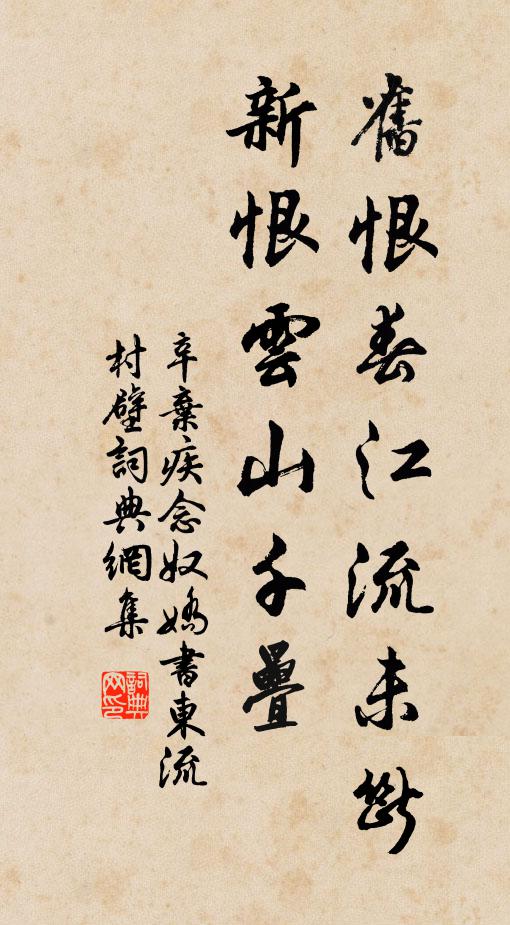 舊恨春江流未斷
新恨雲山千疊
辛棄疾念奴嬌書東流
村壁詞典網集
詞典網印